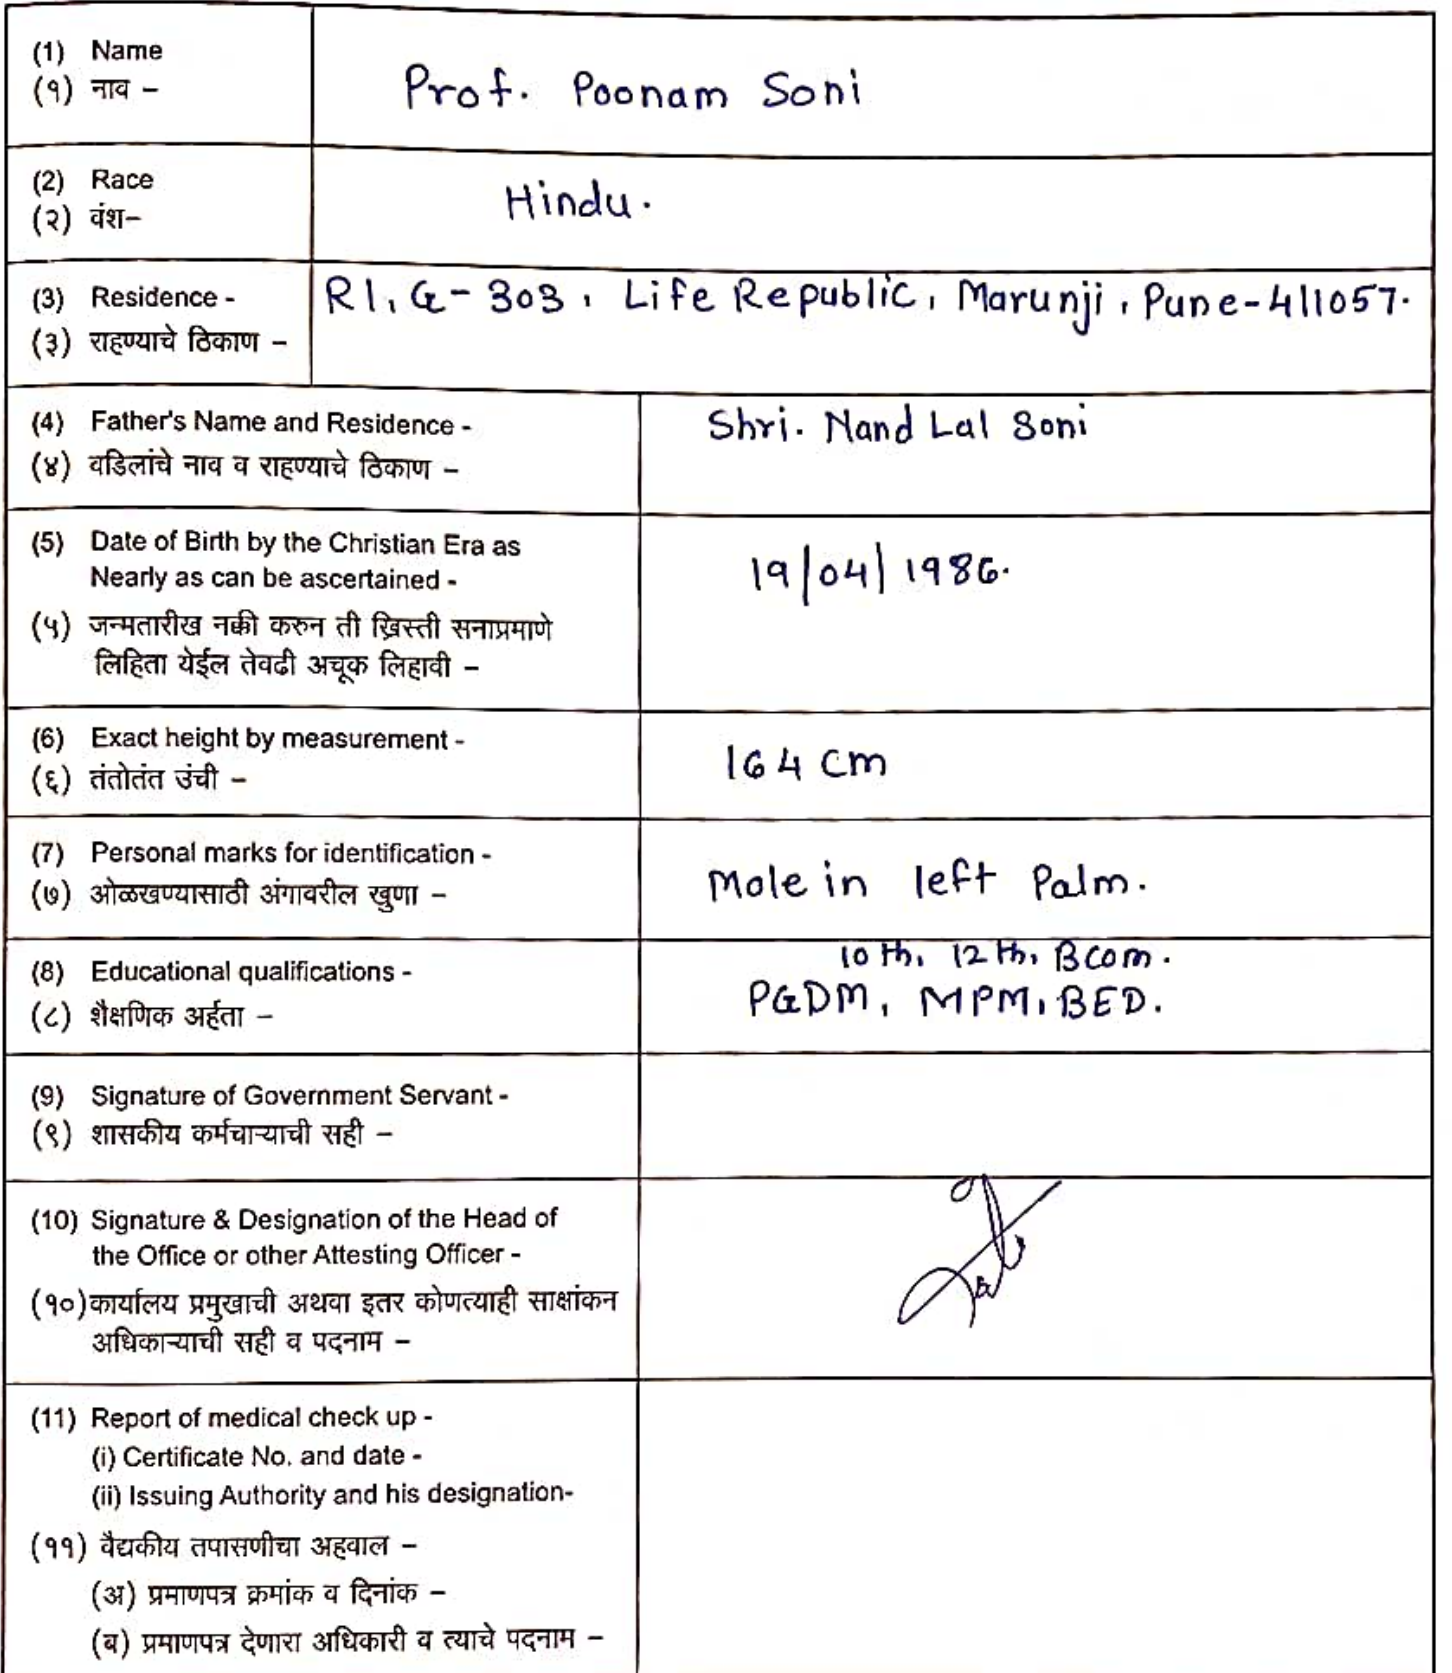 (1) Name
(१) नाव –
Prof. Poonam Soni
(2) Race
(२) वंश–
Hindu.
(3) Residence -
(३) राहण्याचे ठिकाण –
R1, G-303, Life Republic, Marunji, Pune-411057.
(4) Father's Name and Residence -
(४) वडिलांचे नाव व राहण्याचे ठिकाण –
Shri. Nand Lal Soni
(5) Date of Birth by the Christian Era as
Nearly as can be ascertained -
(५) जन्मतारीख नक्की करुन ती ख्रिस्ती सनाप्रमाणे
लिहिता येईल तेवढी अचूक लिहावी –
19/04/1986.
(6) Exact height by measurement -
(६) तंतोतंत उंची –
164 cm
(7) Personal marks for identification -
(७) ओळखण्यासाठी अंगावरील खुणा –
Mole in left Palm.
(8) Educational qualifications -
(८) शैक्षणिक अर्हता –
10th, 12th, Bcom.
PGDM, MPM, BED.
(9) Signature of Government Servant -
(९) शासकीय कर्मचाऱ्याची सही –
(10) Signature & Designation of the Head of
the Office or other Attesting Officer -
(१०) कार्यालय प्रमुखाची अथवा इतर कोणत्याही साक्षांकन
अधिकाऱ्याची सही व पदनाम –
(11) Report of medical check up -
(i) Certificate No. and date -
(ii) Issuing Authority and his designation-
(११) वैद्यकीय तपासणीचा अहवाल –
(अ) प्रमाणपत्र क्रमांक व दिनांक –
(ब) प्रमाणपत्र देणारा अधिकारी व त्याचे पदनाम –